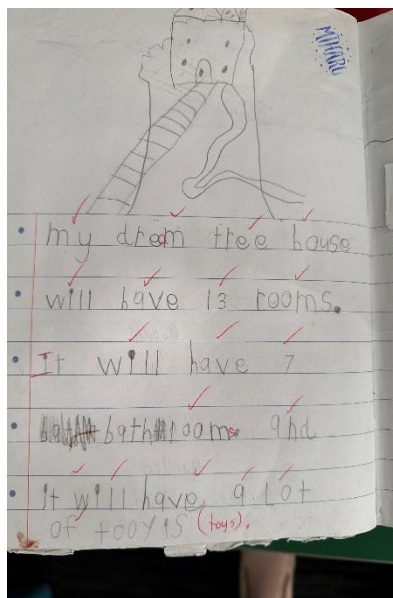 MIHARU
my dream tree house
will have 13 rooms.
It will have 7
bathrooms and
it will have a lot
of tooyis (toys).